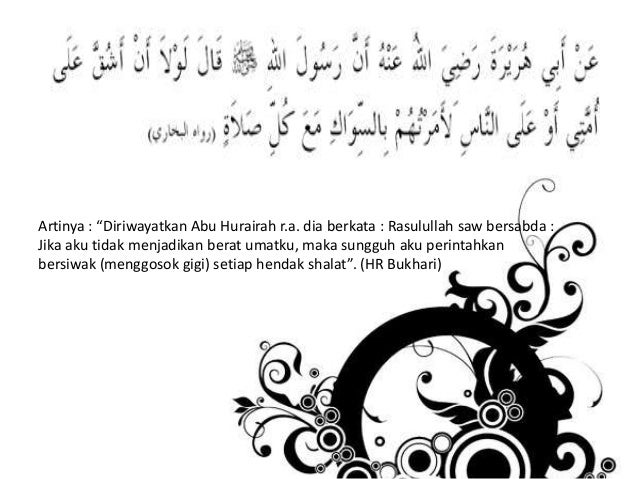 عَنْ أَبِي هُرَيْرَةَ رَضِيَ اللهُ عَنْهُ أَنَّ رَسُولَ اللهِ ﷺ قَالَ لَوْلَا أَنْ أَشُقَّ عَلَى
أُمَّتِي أَوْ عَلَى النَّاسِ لَأَمَرْتُهُمْ بِالسِّوَاكِ مَعَ كُلِّ صَلَاةٍ (رواه البخاري)
Artinya : “Diriwayatkan Abu Hurairah r.a. dia berkata : Rasulullah saw bersabda :
Jika aku tidak menjadikan berat umatku, maka sungguh aku perintahkan
bersiwak (menggosok gigi) setiap hendak shalat”. (HR Bukhari)